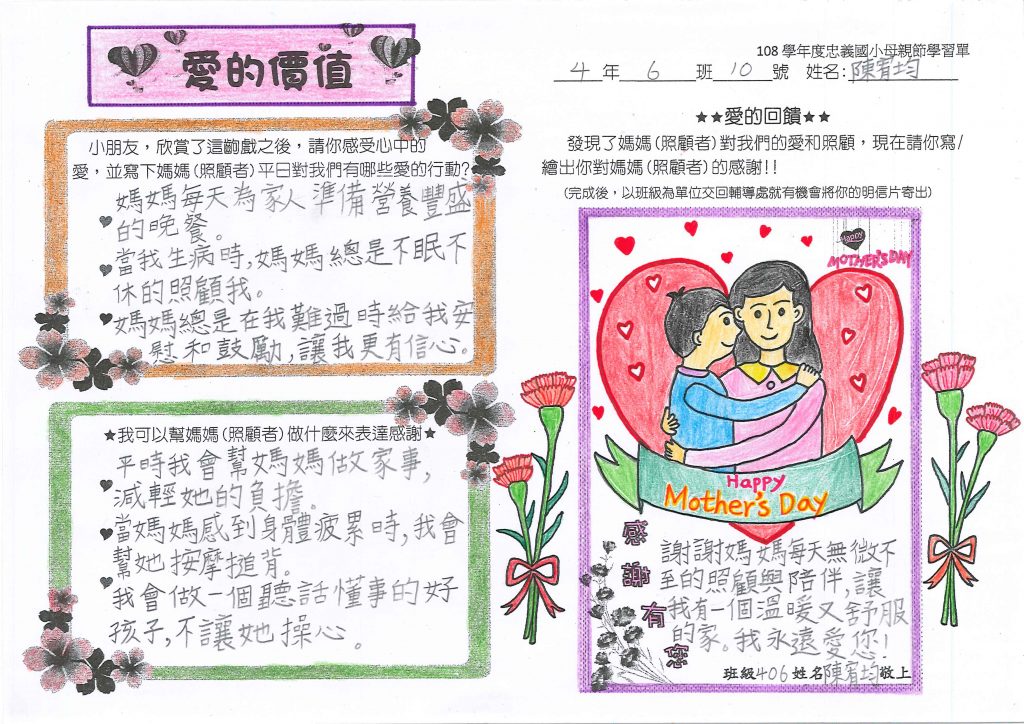 愛的價值
108 學年度忠義國小母親節學習單
4 年 6 班 10 號 姓名: 陳宥均
小朋友，欣賞了這齣戲之後，請你感受心中的
愛，並寫下媽媽(照顧者)平日對我們有哪些愛的行動?
媽媽每天為家人準備營養豐盛
的晚餐。
當我生病時,媽媽總是不眠不
休的照顧我。
媽媽總是在我難過時給我安
慰和鼓勵,讓我更有信心。
★我可以幫媽媽(照顧者)做什麼來表達感謝★
平時我會幫媽媽做家事,
減輕她的負擔。
當媽媽感到身體疲累時,我會
幫她按摩搥背。
我會做一個聽話懂事的好
孩子,不讓她操心。
★★愛的回饋★★
發現了媽媽(照顧者)對我們的愛和照顧，現在請你寫/
繪出你對媽媽(照顧者)的感謝!!
(完成後，以班級為單位交回輔導處就有機會將你的明信片寄出)
Happy
MOTHER'S DAY
Happy
Mother's Day
感謝有您
謝謝媽媽每天無微不
至的照顧與陪伴,讓
我有一個溫暖又舒服
的家。我永遠愛您!
班級406姓名陳宥均敬上